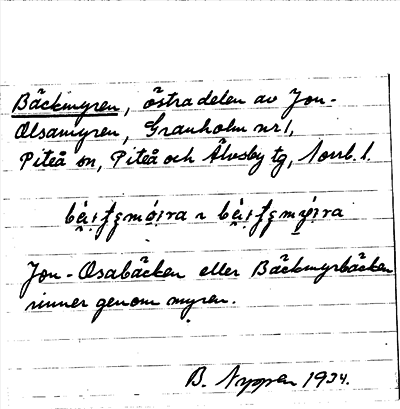 Bäckmyren, östra delen av Jon-
Olsamyren, Granholm nr 1,
Piteå sn, Piteå och Älvsby tg, Norrb. l.
Jon-Osabäcken eller Bäckmyrbäcken
rinner genom myren.
B. Nyppen 1934.